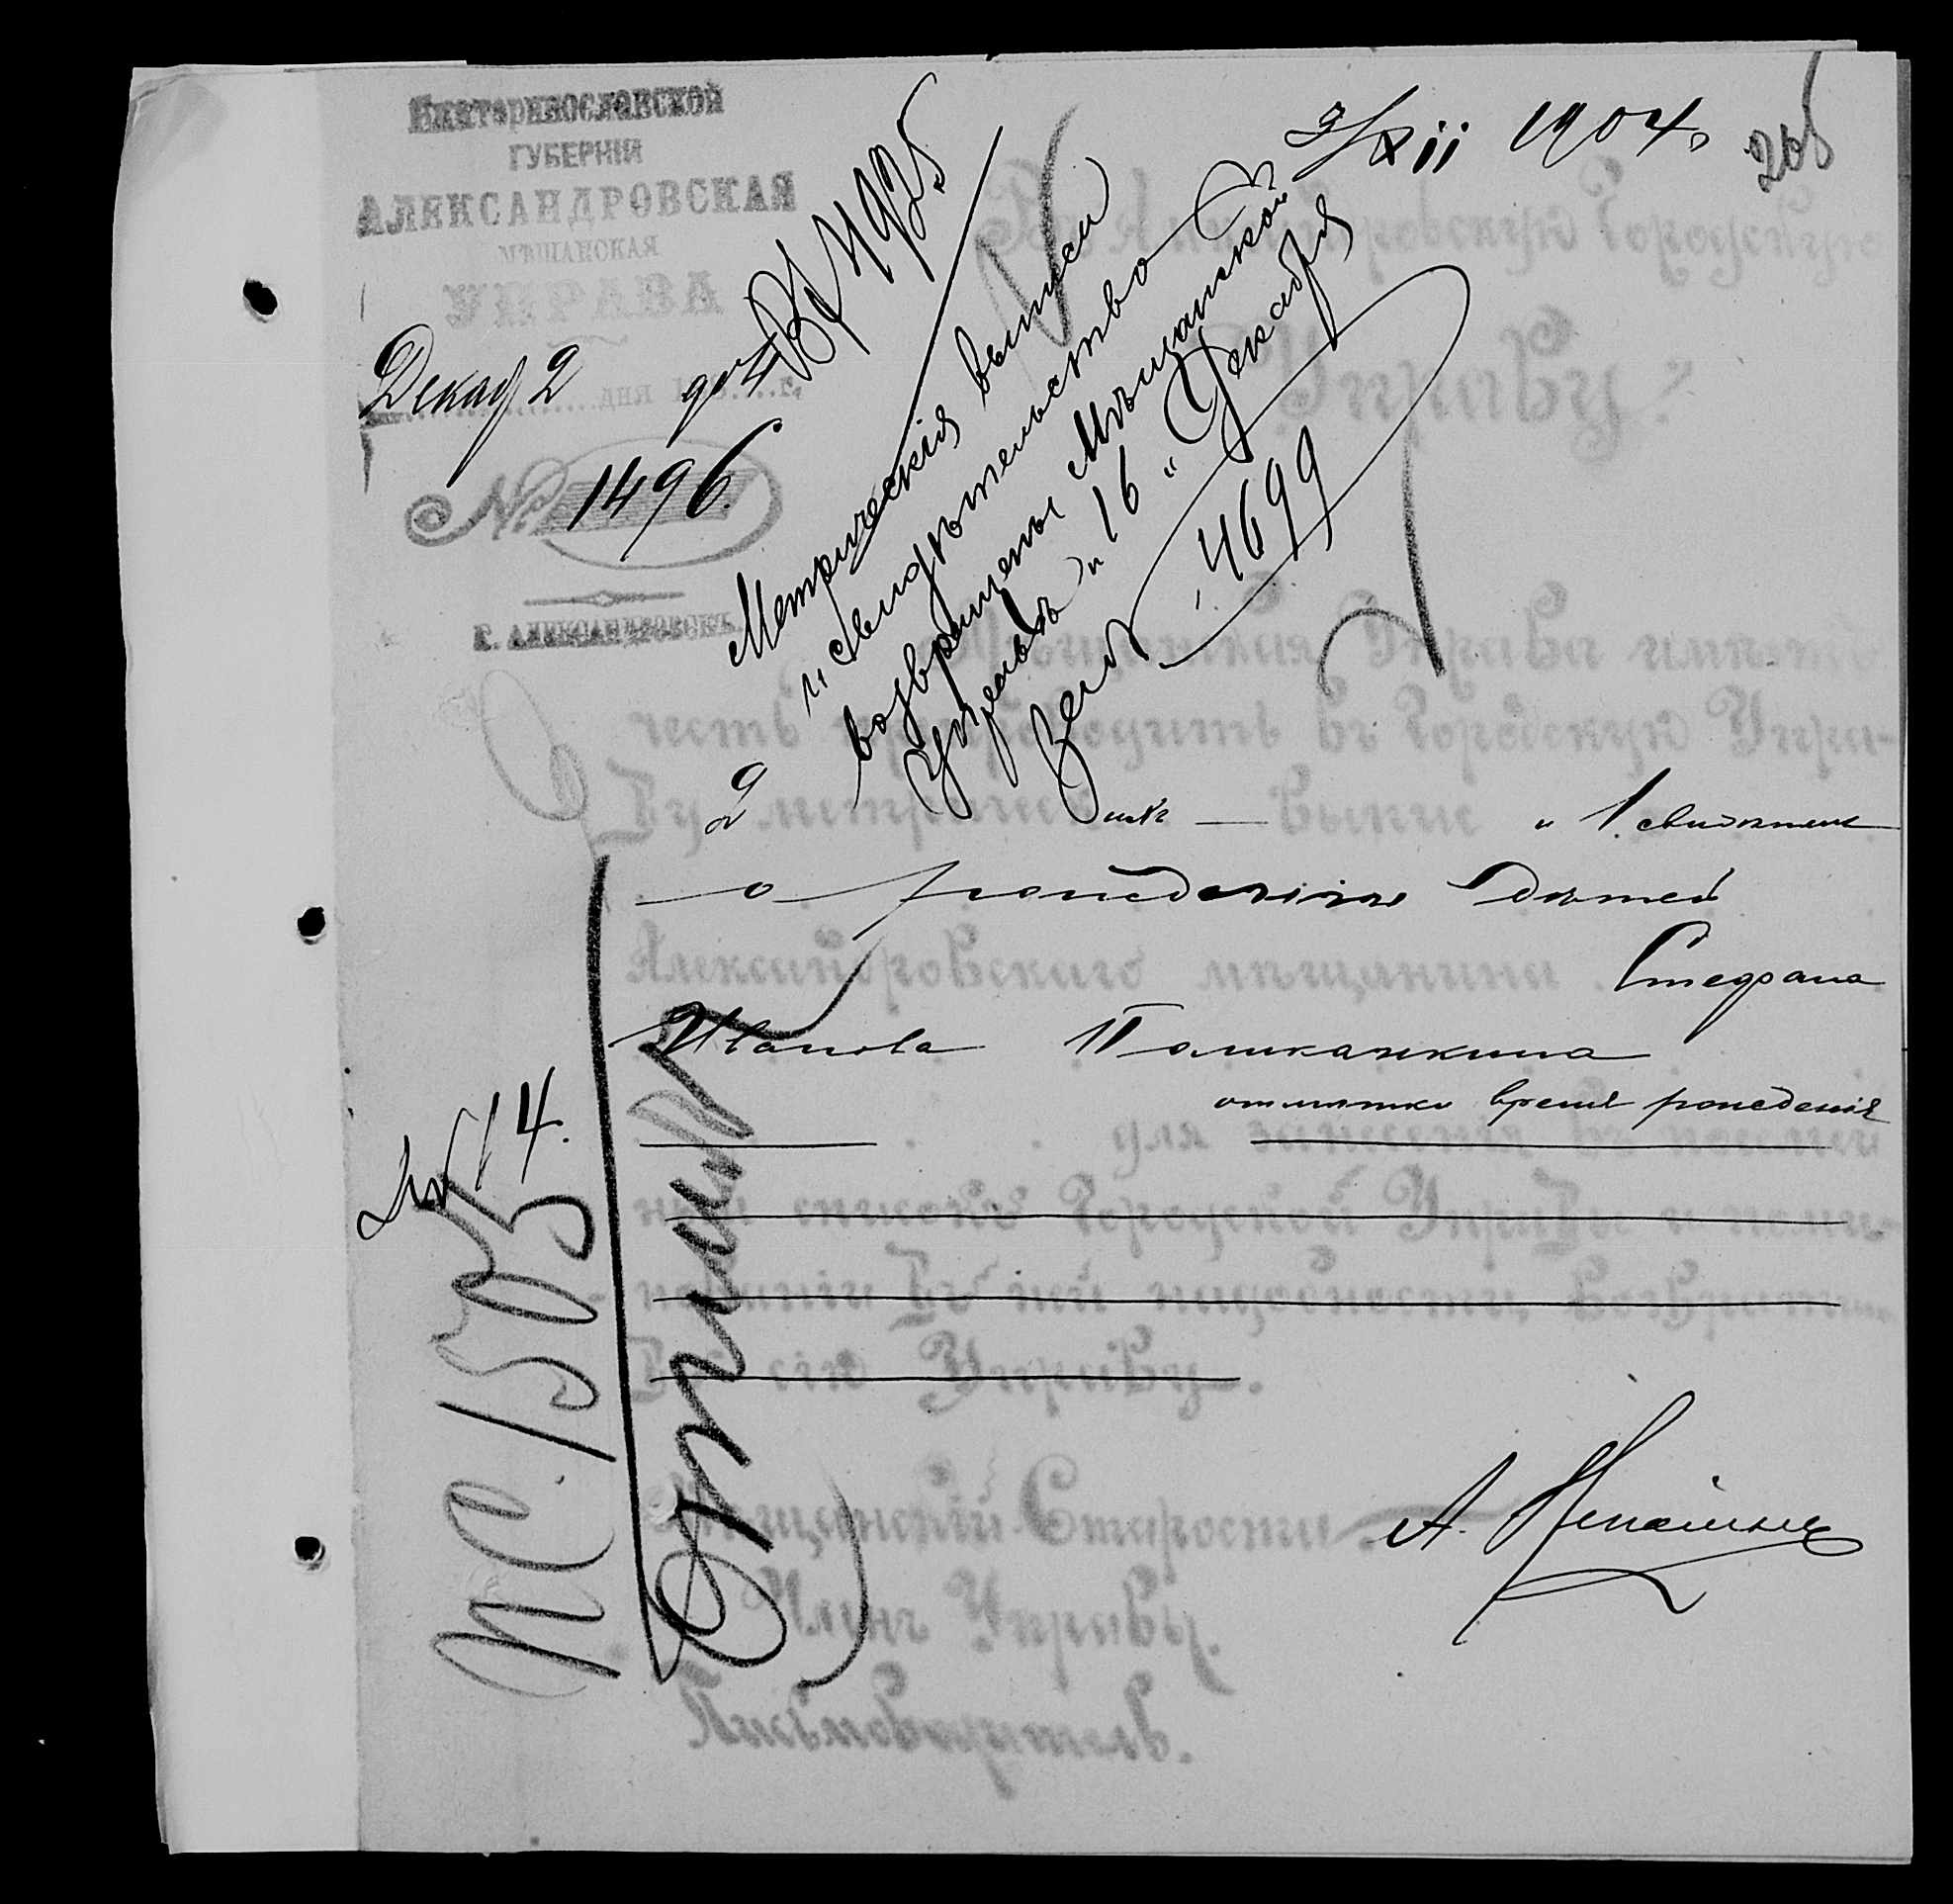 Екатеринославской
ГУБЕРНІИ
АЛЕКСАНДРОВСКАЯ
МѢЩАНСКАЯ
УПРАВА
Декаб 2 дня
№ 1496.
Г. АЛЕКСАНДРОВСКЪ.
1904
Вх 4925
Метрическія выписи
и свидѣтельство
возвращены Мѣщанской
Управѣ „16“ Декабря
за № 4699
Въ Александровскую Городскую
Управу.
Мѣщанская Управа имѣетъ
честь препроводить въ Городскую Упра-
ву метрическ 2 выпис и 1 свидѣтель
о рожденіи дѣтей
Александровскаго мѣщанина Стефана
Иванова
отмѣтки время рожденія
для занесенія въ посемей
ный списокъ Городской Управы и поми-
нованіи въ ней надобности, возвратить
въ сію Управу.
Мѣщанскій Староста А.
Членъ Управы.
Письмоводитель.
14.
1505